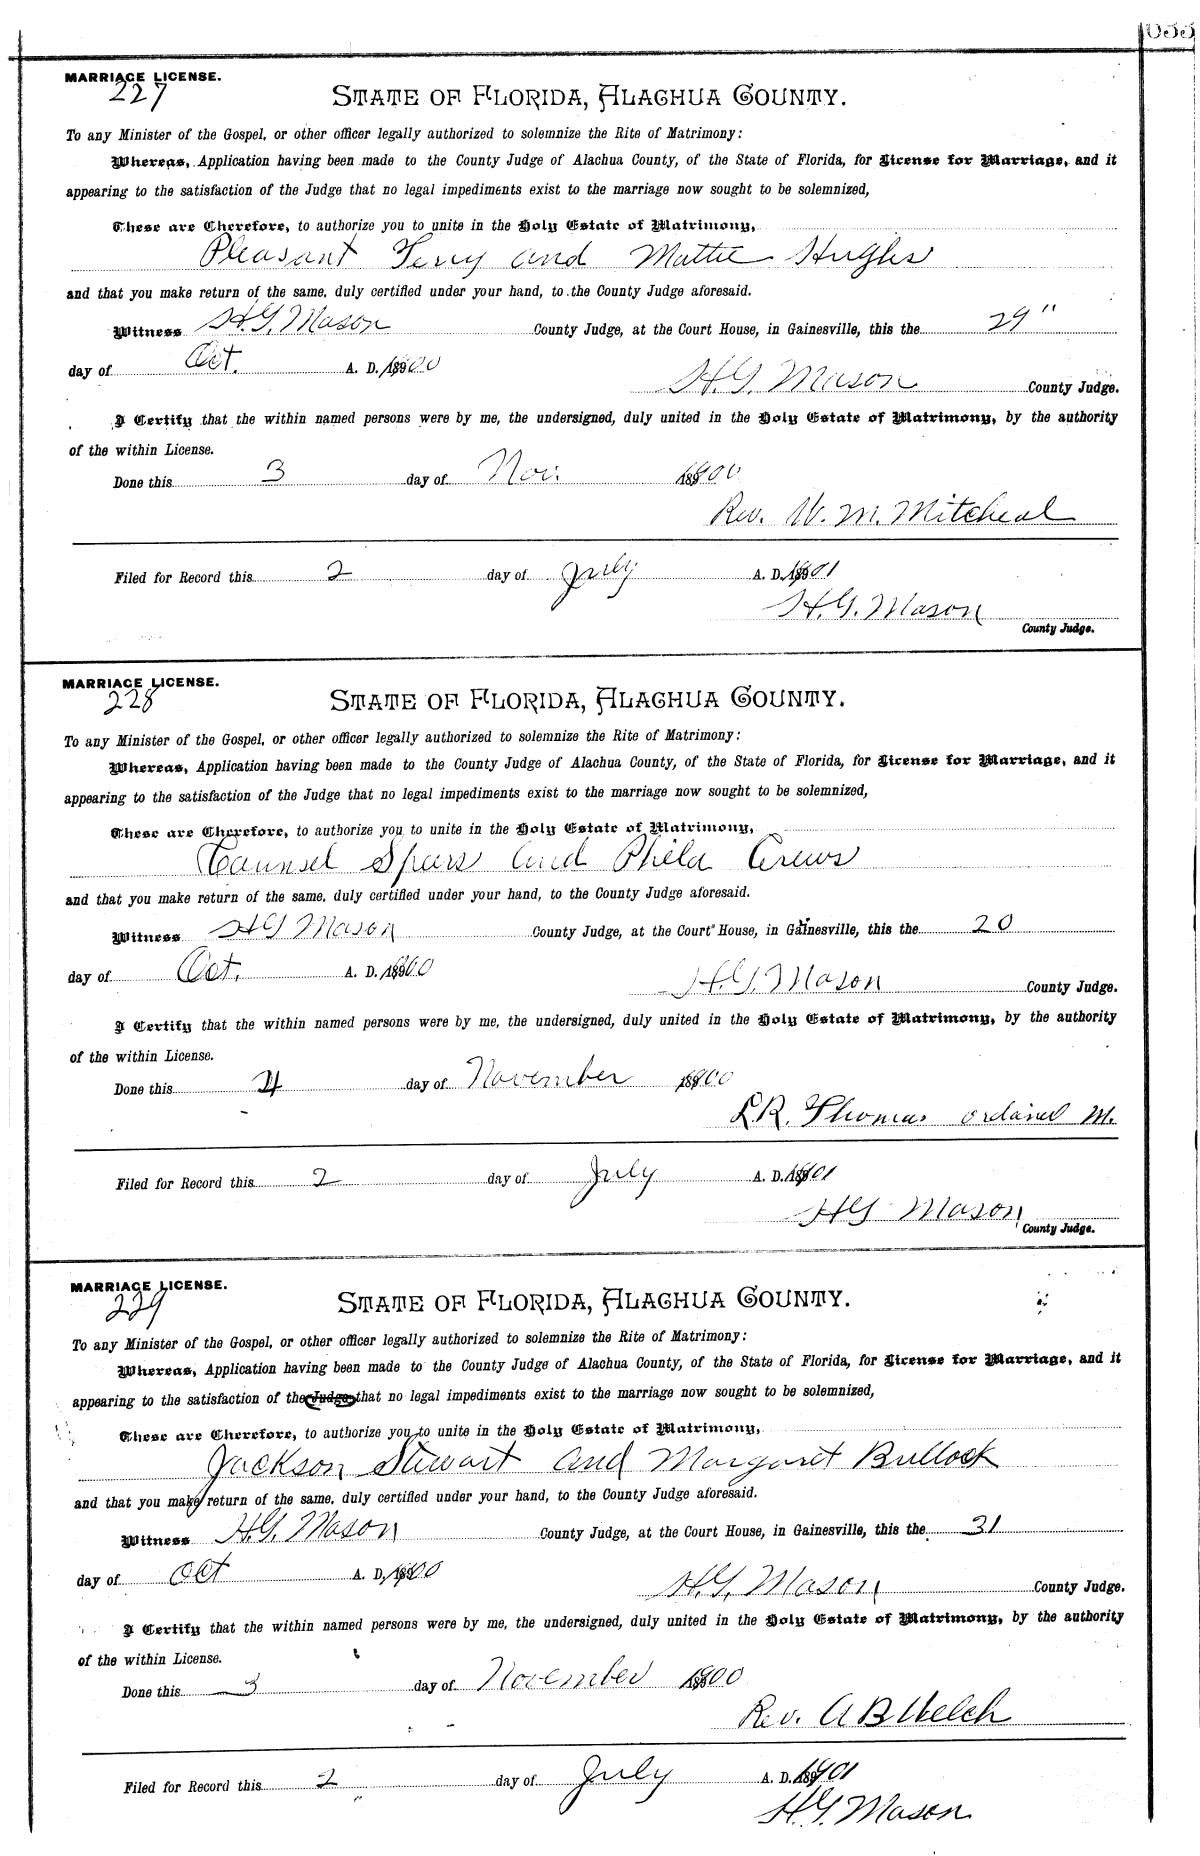 033
MARRIAGE LICENSE.
227
STATE OF FLORIDA, ALACHUA COUNTY.
To any Minister of the Gospel, or other officer legally authorized to solemnize the Rite of Matrimony:
Whereas, Application having been made to the County Judge of Alachua County, of the State of Florida, for License for Marriage, and it
appearing to the satisfaction of the Judge that no legal impediments exist to the marriage now sought to be solemnized,
These are Therefore, to authorize you to unite in the Holy Estate of Matrimony,
Pleasant Terry and Mattie Hughs
and that you make return of the same, duly certified under your hand, to the County Judge aforesaid.
Witness H.G. Mason County Judge, at the Court House, in Gainesville, this the 29"
day of Oct. A. D. 1900
H.G. Mason County Judge.
I Certify that the within named persons were by me, the undersigned, duly united in the Holy Estate of Matrimony, by the authority
of the within License.
Done this 3 day of Nov. 1900
Rev. W. M. Mitcheal
Filed for Record this 2 day of July A. D. 1901
H.G. Mason
County Judge.
MARRIAGE LICENSE.
228
STATE OF FLORIDA, ALACHUA COUNTY.
To any Minister of the Gospel, or other officer legally authorized to solemnize the Rite of Matrimony:
Whereas, Application having been made to the County Judge of Alachua County, of the State of Florida, for License for Marriage, and it
appearing to the satisfaction of the Judge that no legal impediments exist to the marriage now sought to be solemnized,
These are Therefore, to authorize you to unite in the Holy Estate of Matrimony,
Counsel Spears and Phila Crews
and that you make return of the same, duly certified under your hand, to the County Judge aforesaid.
Witness H G Mason County Judge, at the Court House, in Gainesville, this the 20
day of Oct. A. D. 1900
H.G. Mason County Judge.
I Certify that the within named persons were by me, the undersigned, duly united in the Holy Estate of Matrimony, by the authority
of the within License.
Done this 4 day of November 1900
L.R. Thomas ordained M.
Filed for Record this 2 day of July A. D. 1901
H G Mason
County Judge.
MARRIAGE LICENSE.
229
STATE OF FLORIDA, ALACHUA COUNTY.
To any Minister of the Gospel, or other officer legally authorized to solemnize the Rite of Matrimony:
Whereas, Application having been made to the County Judge of Alachua County, of the State of Florida, for License for Marriage, and it
appearing to the satisfaction of the Judge that no legal impediments exist to the marriage now sought to be solemnized,
These are Therefore, to authorize you to unite in the Holy Estate of Matrimony,
Jackson Stewart and Margaret Bullock
and that you make return of the same, duly certified under your hand, to the County Judge aforesaid.
Witness H.G. Mason County Judge, at the Court House, in Gainesville, this the 31
day of Oct A. D. 1900
H.G. Mason County Judge.
I Certify that the within named persons were by me, the undersigned, duly united in the Holy Estate of Matrimony, by the authority
of the within License.
Done this 3 day of November 1900
Rev. A B Welch
Filed for Record this 2 day of July A. D. 1901
H.G. Mason